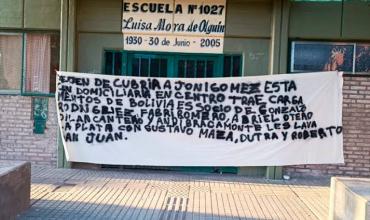 ESCUELA Nº1027
Luisa Mora de Olguín
1930 - 30 de Junio - 2005
DE CUBRIR A JONI GOMEZ ESTA
EN DOMICILIARIA EN CENTRO TRAE CARGA
DE BOLIVIA ES SOCIO DE GONZALO
FABRI ROMERO, ABRIEL OTERO
CANTERO, ANDI BRACAMONTE LES LAVA
PLATA CON GUSTAVO MAZA, DUTRA Y ROBERTO
JUAN.